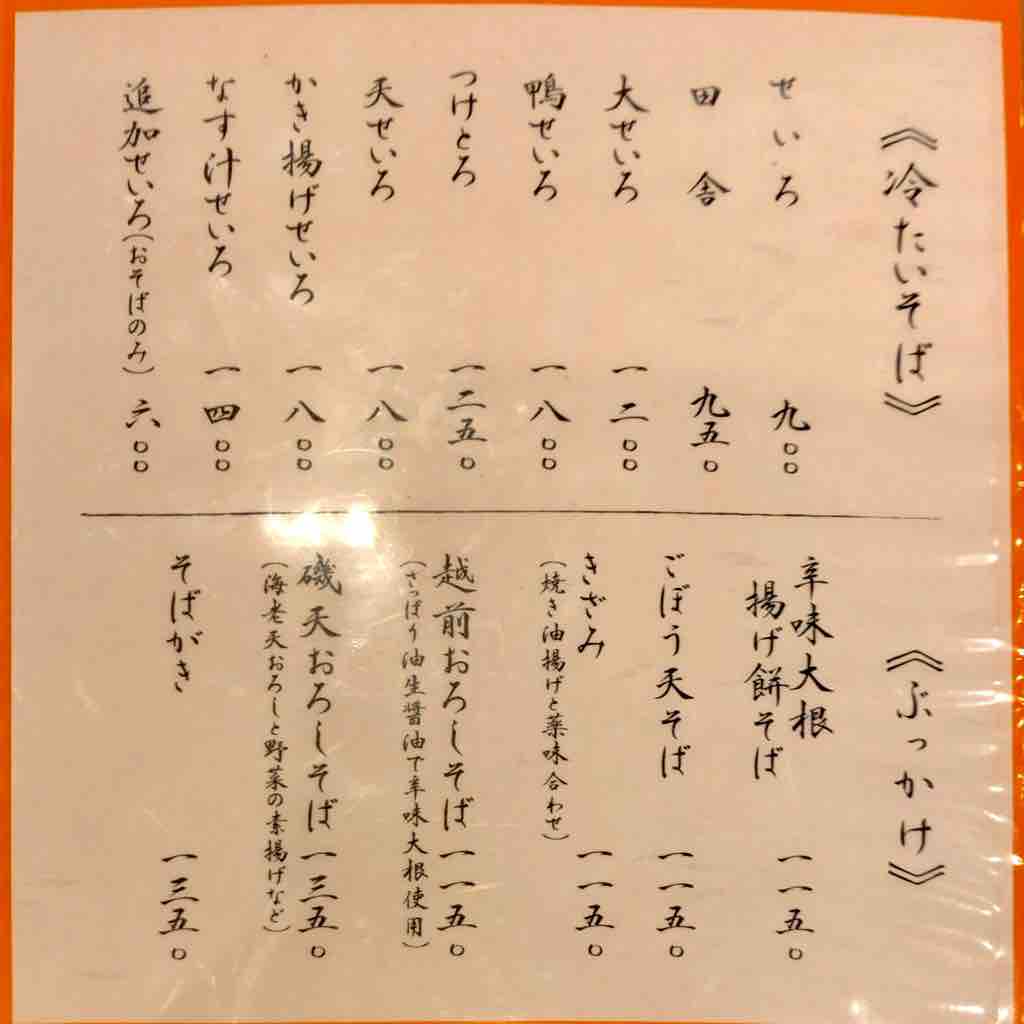 《冷たいそば》
せいろ 九〇〇
田舎 九五〇
大せいろ 一二〇〇
鴨せいろ 一八〇〇
つけとろ 一二五〇
天せいろ 一八〇〇
かき揚げせいろ 一八〇〇
なす汁せいろ 一四〇〇
追加せいろ(おそばのみ) 六〇〇
《ぶっかけ》
辛味大根
揚げ餅そば 一一五〇
ごぼう天そば 一一五〇
きざみ 一一五〇
(焼き油揚げと薬味合わせ)
越前おろしそば 一一五〇
(さっぱり油生醤油で辛味大根使用)
磯天おろしそば 一三五〇
(海老天おろしと野菜の素揚げなど)
そばがき 一三五〇